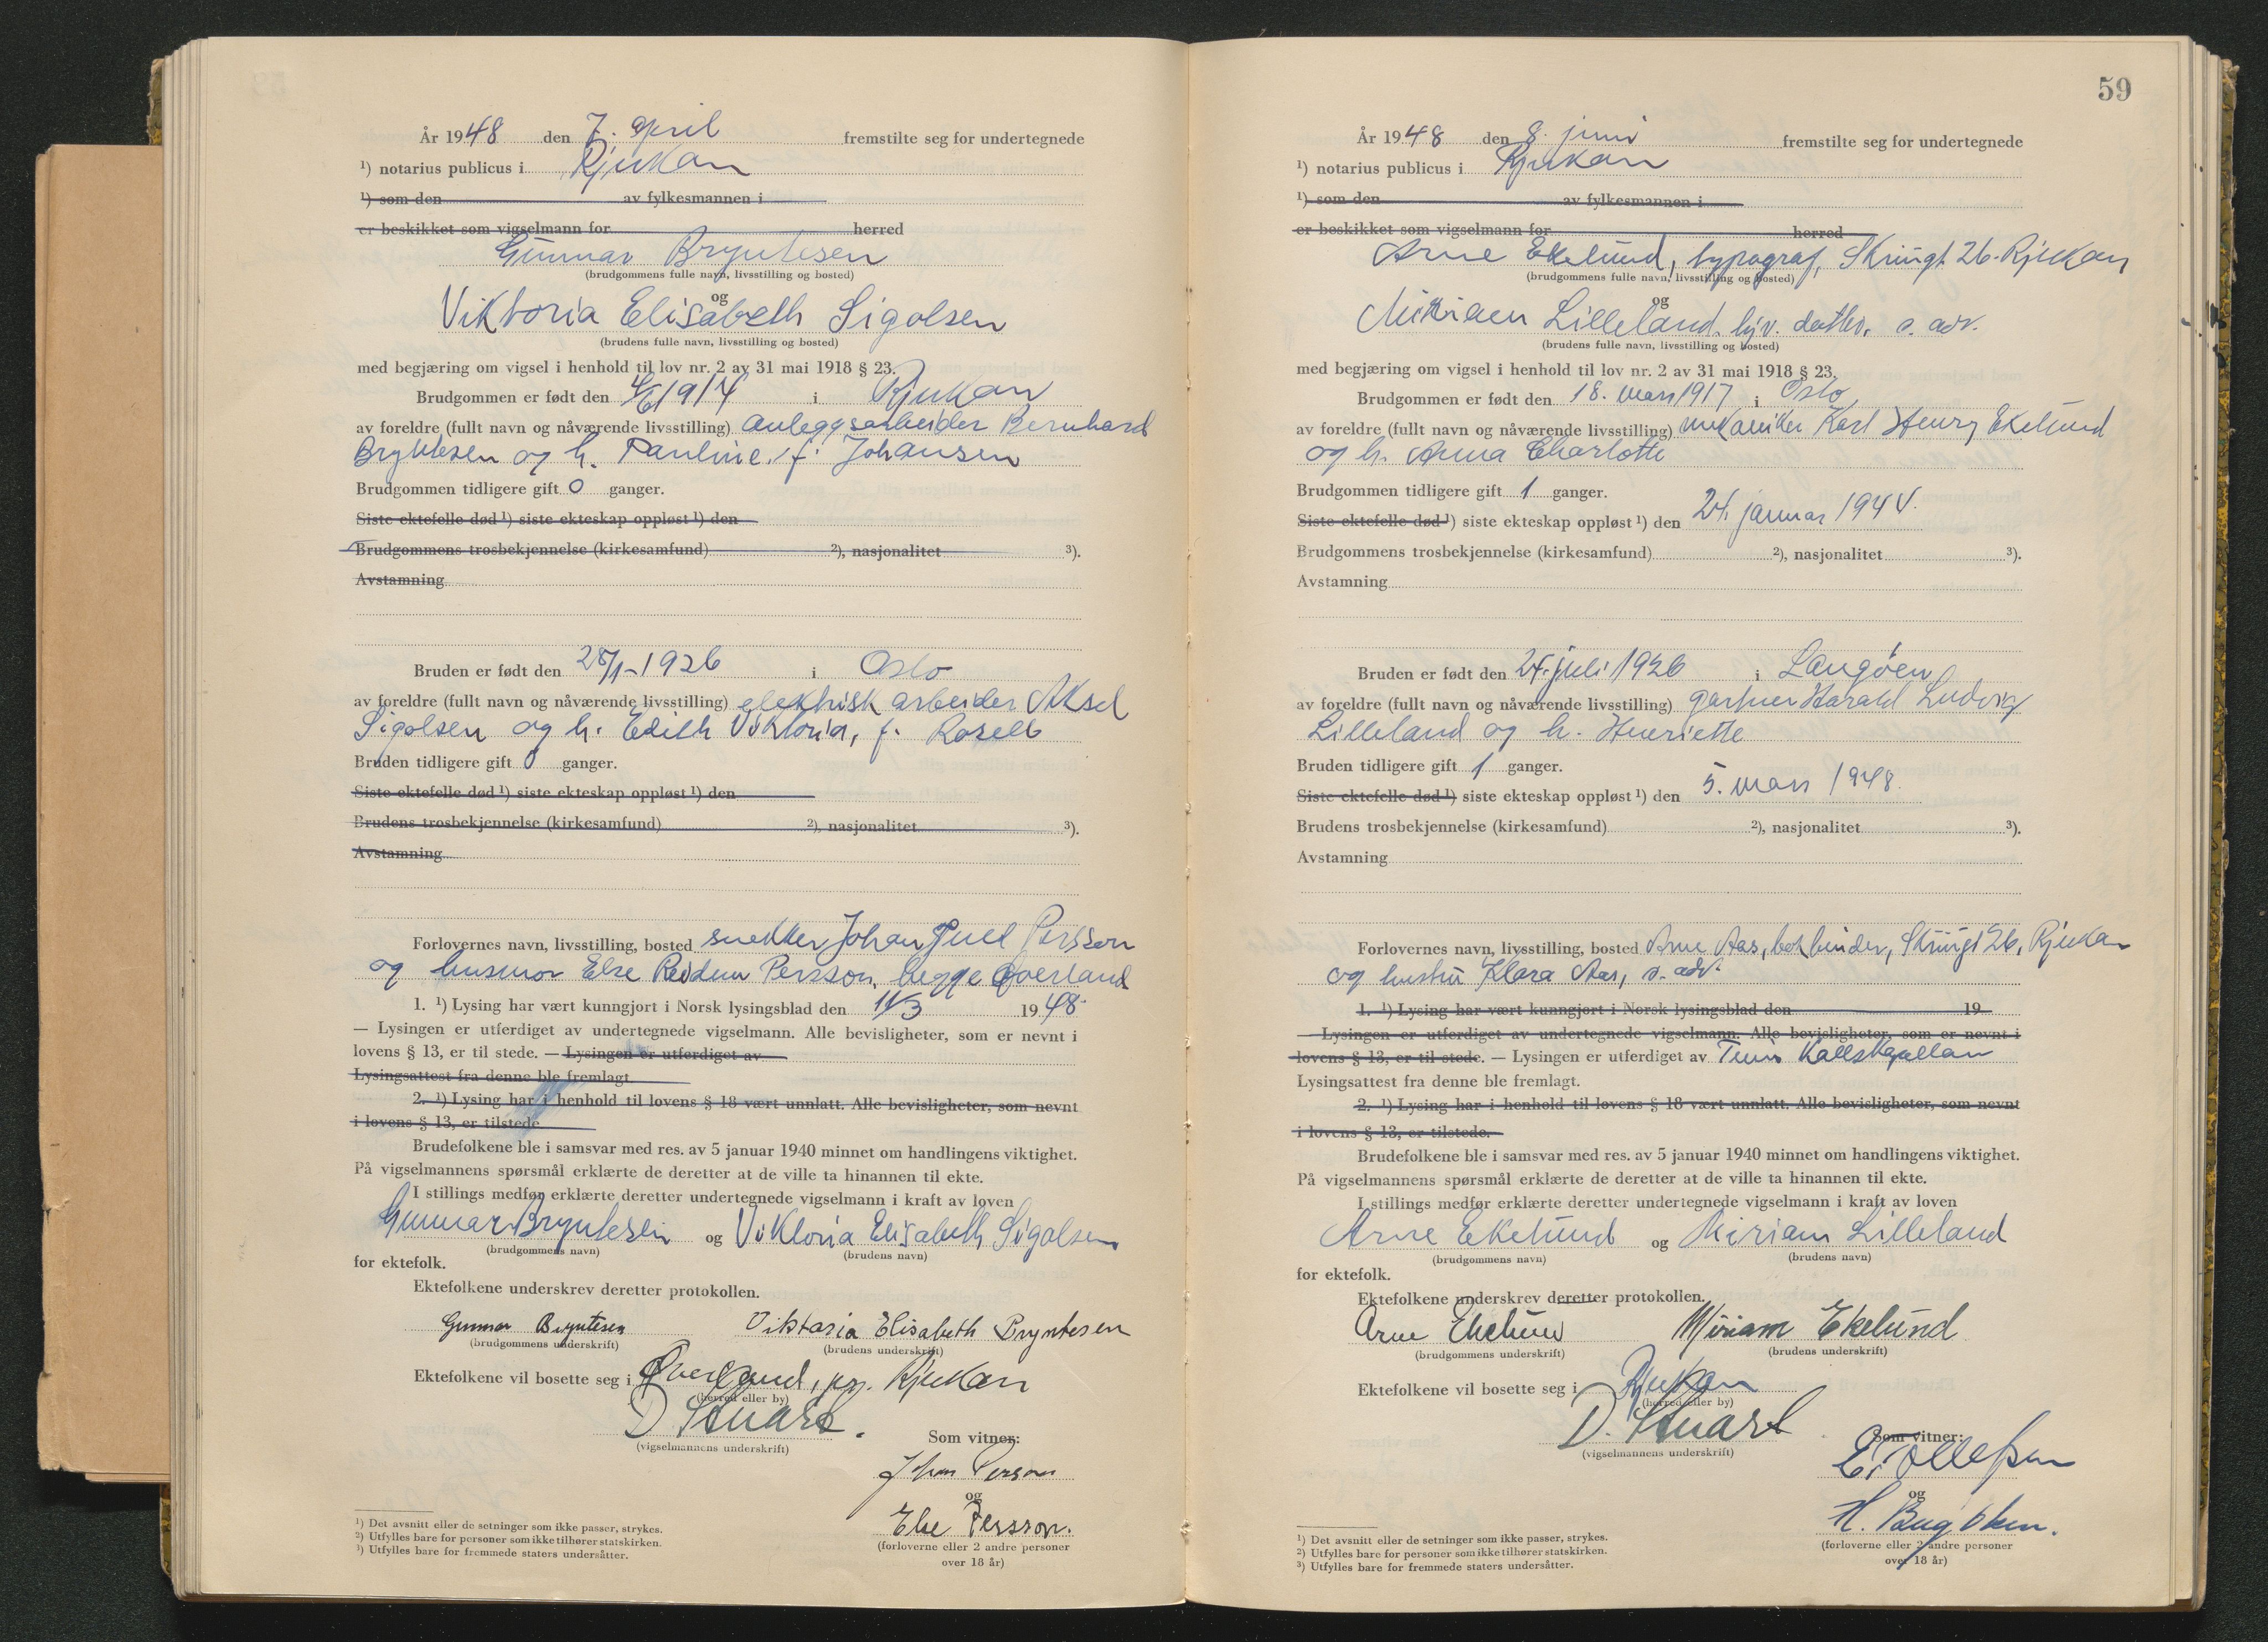 År 1948 den 7. april fremstilte seg for undertegnede
¹) notarius publicus i Rjukan
¹) som den av fylkesmannen i
er beskikket som vigselmann for herred
Gunnar Bryntesen
(brudgommens fulle navn, livsstilling og bosted)
og
Viktoria Elisabeth Sigolsen
(brudens fulle navn, livsstilling og bosted)
med begjæring om vigsel i henhold til lov nr. 2 av 31 mai 1918 § 23.
Brudgommen er født den 4/6 1914 i Rjukan
av foreldre (fullt navn og nåværende livsstilling) anleggsarbeider Bernhard
Bryntesen og h. Pauline, f. Johansen
Brudgommen tidligere gift 0 ganger.
Siste ektefelle død ¹) siste ekteskap oppløst ¹) den
Brudgommens trosbekjennelse (kirkesamfund) ²), nasjonalitet ³).
Avstamning
Bruden er født den 28/1-1926 i Oslo
av foreldre (fullt navn og nåværende livsstilling) elektrisk arbeider Aksel
Sigolsen og h. Edith Viktoria, f. Rosell
Bruden tidligere gift 0 ganger.
Siste ektefelle død ¹) siste ekteskap oppløst ¹) den
Brudens trosbekjennelse (kirkesamfund) ²), nasjonalitet ³).
Avstamning
Forlovernes navn, livsstilling, bosted snekker Johan Persson
og husmor Else Reidun Persson, begge Øverland
1. ¹) Lysing har vært kunngjort i Norsk lysingsblad den 11/3 1948
— Lysingen er utferdiget av undertegnede vigselmann. Alle bevisligheter, som er nevnt i
lovens § 13, er til stede. — Lysingen er utferdiget av
Lysingsattest fra denne ble fremlagt
2. ¹) Lysing har i henhold til lovens § 18 vært unnlatt. Alle bevisligheter, som nevnt
i lovens § 13, er tilstede
Brudefolkene ble i samsvar med res. av 5 januar 1940 minnet om handlingens viktighet.
På vigselmannens spørsmål erklærte de deretter at de ville ta hinannen til ekte.
I stillings medfør erklærte deretter undertegnede vigselmann i kraft av loven
Gunnar Bryntesen og Viktoria Elisabeth Sigolsen
(brudgommens navn) (brudens navn)
for ektefolk.
Ektefolkene underskrev deretter protokollen.
Gunnar Bryntesen Viktoria Elisabeth Bryntesen
(brudgommens underskrift) (brudens underskrift)
Ektefolkene vil bosette seg i Øverland, pr. Rjukan
(herred eller by)
D. Stuart.
(vigselmannens underskrift)
Som vitner:
Johan Persson
og
Else Persson.
(forloverne eller 2 andre personer
over 18 år)
¹) Det avsnitt eller de setninger som ikke passer, strykes.
²) Utfylles bare for personer som ikke tilhører statskirken.
³) Utfylles bare for fremmede staters undersåtter.
59
År 1948 den 8. juni fremstilte seg for undertegnede
¹) notarius publicus i Rjukan
¹) som den av fylkesmannen i
er beskikket som vigselmann for herred
Arne Ekelund, typograf, Skriugt 26. Rjukan
(brudgommens fulle navn, livsstilling og bosted)
og
Miriam Lilleland. hjv. datter. s. adr.
(brudens fulle navn, livsstilling og bosted)
med begjæring om vigsel i henhold til lov nr. 2 av 31 mai 1918 § 23.
Brudgommen er født den 18. mars 1917 i Oslo
av foreldre (fullt navn og nåværende livsstilling) mekaniker Karl Henry Ekelund
og h. Anna Charlotte
Brudgommen tidligere gift 1 ganger.
Siste ektefelle død ¹) siste ekteskap oppløst ¹) den 24. januar 1944.
Brudgommens trosbekjennelse (kirkesamfund) ²), nasjonalitet ³).
Avstamning
Bruden er født den 24. juli 1926 i Langøen
av foreldre (fullt navn og nåværende livsstilling) gartner Harald Ludvig
Lilleland og h. Henriette
Bruden tidligere gift 1 ganger.
Siste ektefelle død ¹) siste ekteskap oppløst ¹) den 5. mars 1948.
Brudens trosbekjennelse (kirkesamfund) ²), nasjonalitet ³).
Avstamning
Forlovernes navn, livsstilling, bosted Arne Aas, bokbinder, Skriugt 26, Rjukan
og hustru Klara Aas, s. adr.
1. ¹) Lysing har vært kunngjort i Norsk lysingsblad den 19
— Lysingen er utferdiget av undertegnede vigselmann. Alle bevisligheter, som er nevnt i
lovens § 13, er til stede. — Lysingen er utferdiget av Tinn Kallskapellan
Lysingsattest fra denne ble fremlagt.
2. ¹) Lysing har i henhold til lovens § 18 vært unnlatt. Alle bevisligheter, som nevnt
i lovens § 13, er tilstede.
Brudefolkene ble i samsvar med res. av 5 januar 1940 minnet om handlingens viktighet.
På vigselmannens spørsmål erklærte de deretter at de ville ta hinannen til ekte.
I stillings medfør erklærte deretter undertegnede vigselmann i kraft av loven
Arne Ekelund og Miriam Lilleland
(brudgommens navn) (brudens navn)
for ektefolk.
Ektefolkene underskrev deretter protokollen.
Arne Ekelund Miriam Ekelund
(brudgommens underskrift) (brudens underskrift)
Ektefolkene vil bosette seg i Rjukan
(herred eller by)
D. Stuart
(vigselmannens underskrift)
Som vitner:
E. Tollefsen
og
H.
(forloverne eller 2 andre personer
over 18 år)
¹) Det avsnitt eller de setninger som ikke passer, strykes.
²) Utfylles bare for personer som ikke tilhører statskirken.
³) Utfylles bare for fremmede staters undersåtter.